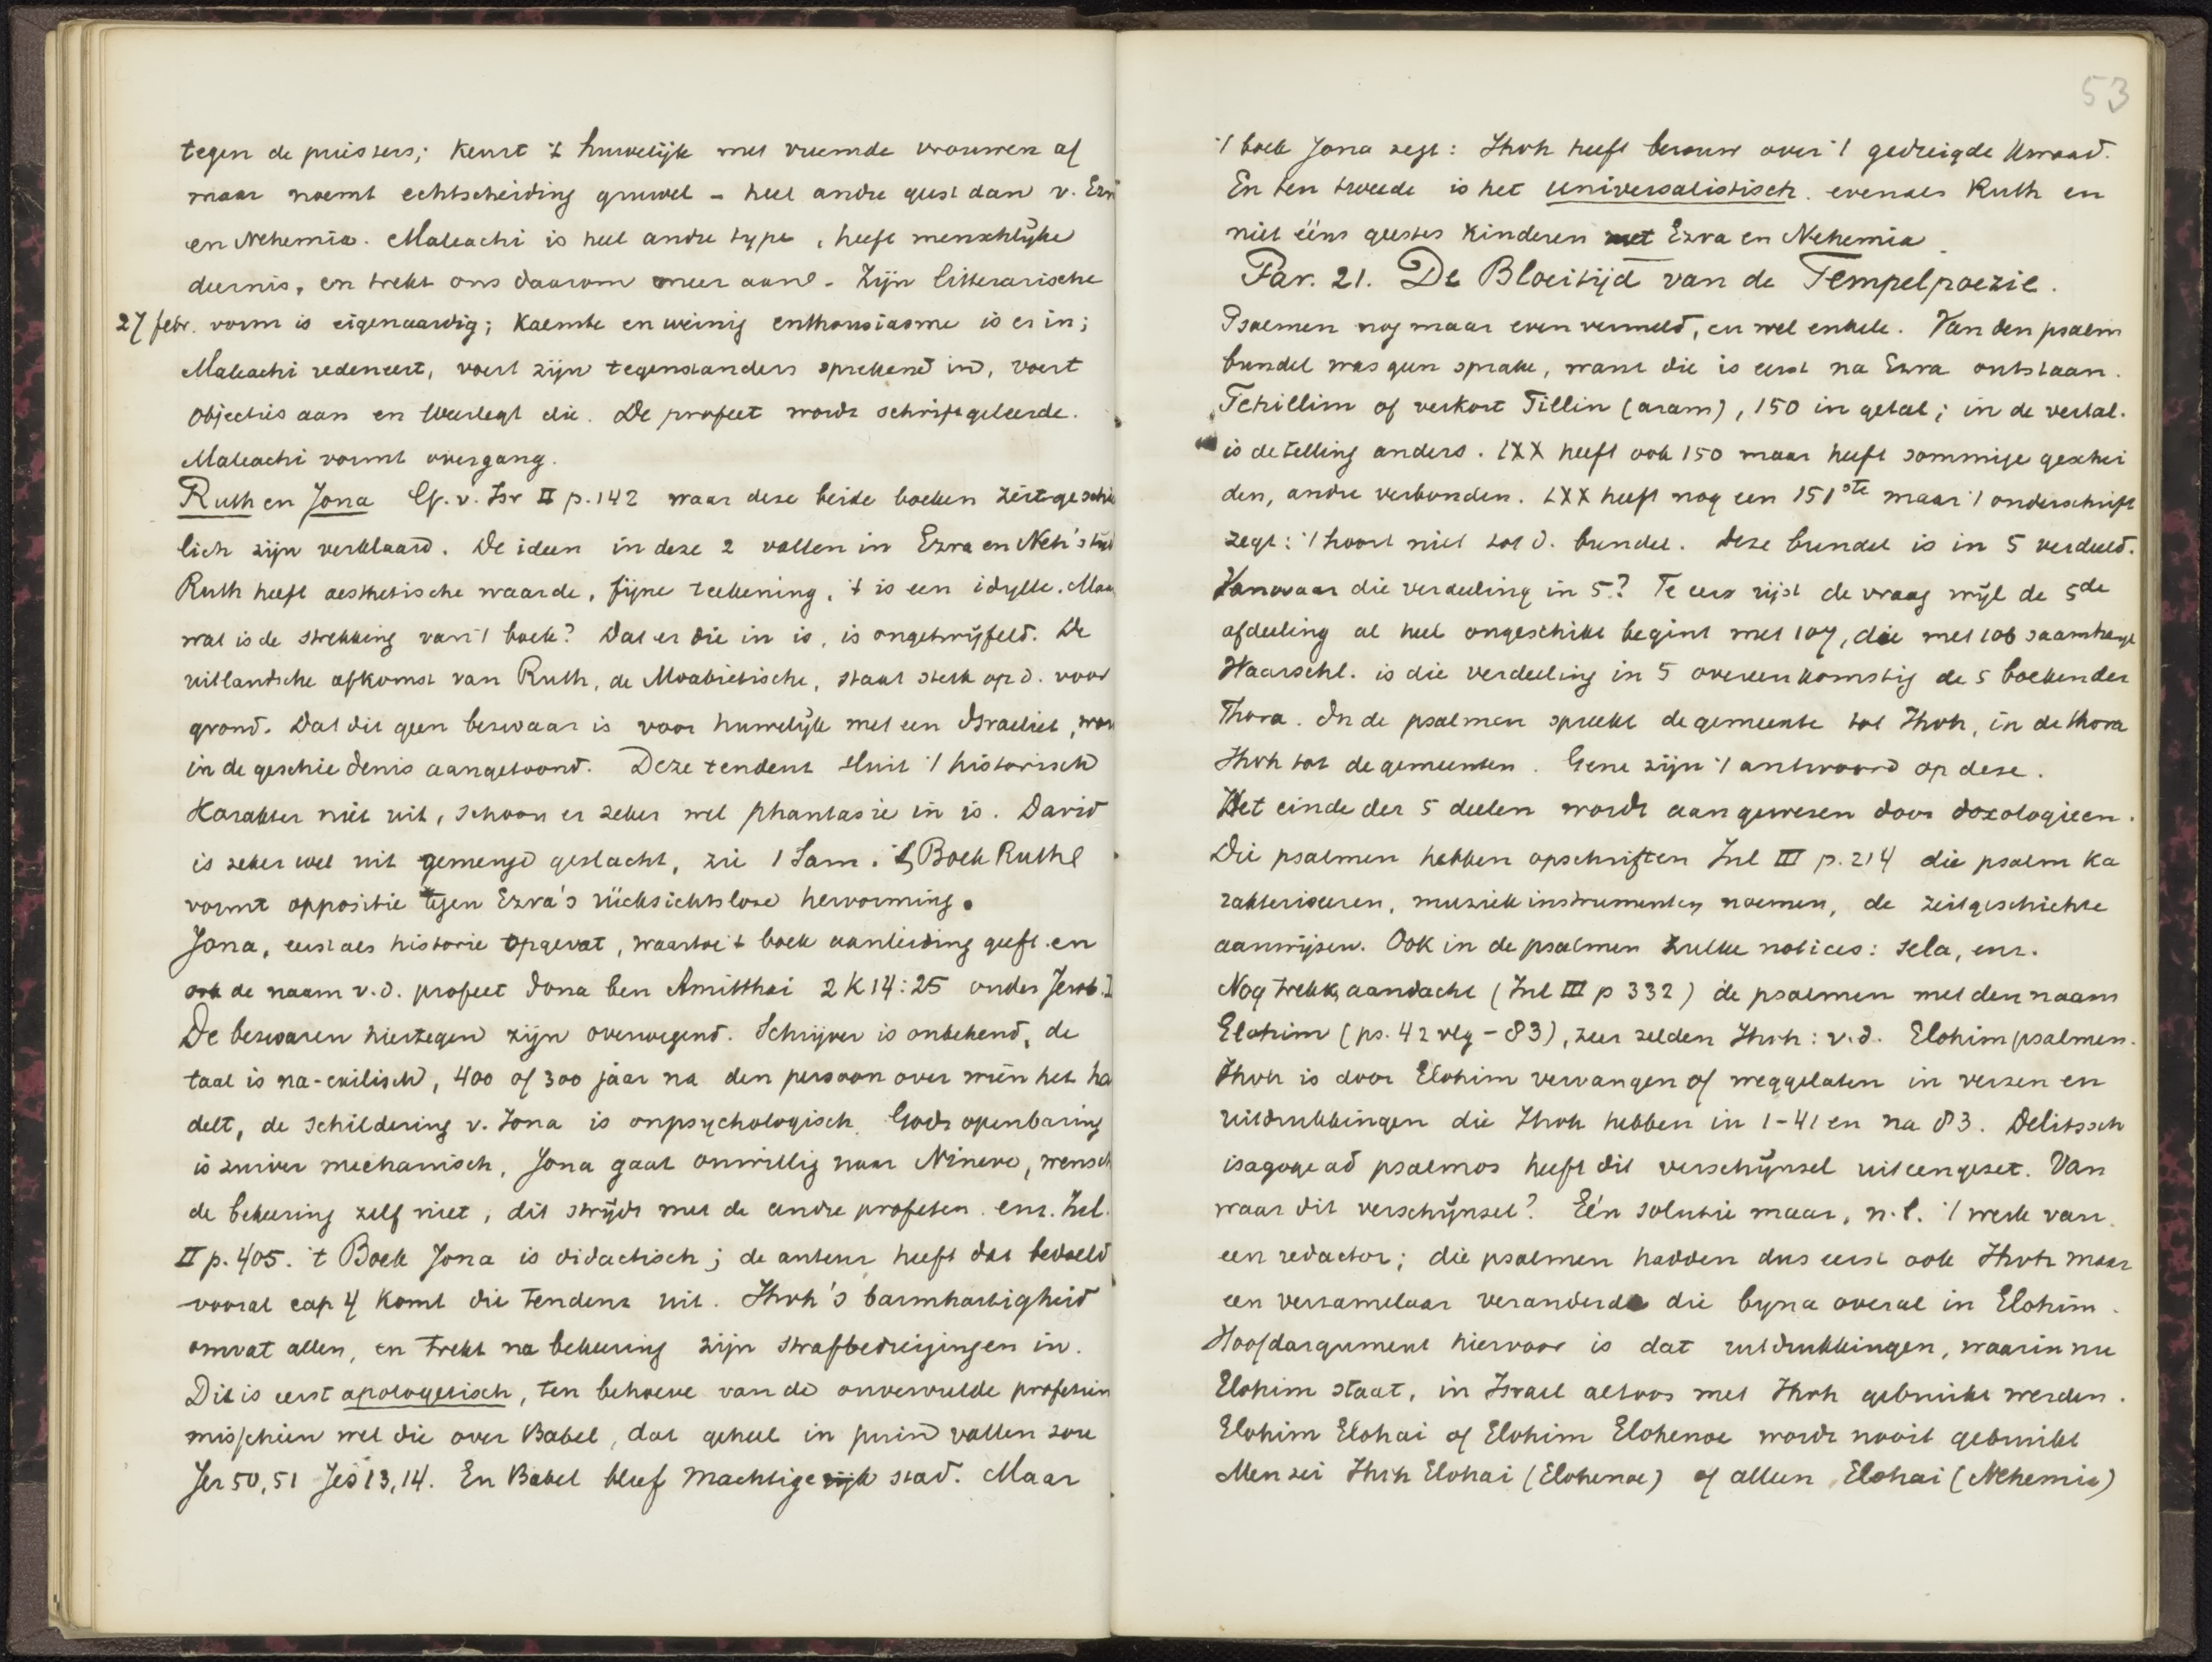 tegen de priesters; keurt 't huwelijk met vreemde vrouwen af
maar noemt echtscheiding gruwel - heel andre geest dan v. Ezra
en Nehemia. Maleachi is heel andre type, heeft menschlijke
deernis, en trekt ons daarom meer aan. Zijn litterarische
27 febr. vorm is eigenaardig; kalmte en weinig enthousiasme is er in;
Maleachi redeneert, voert zijn tegenstanders sprekend in, voert
objecties aan en weerlegt die. De profeet wordt schriftgeleerde.
Maleachi vormt overgang.
Ruth en Jona G. v. Isr II p. 142 waar deze beide boeken zeitgeschicht
lich zijn verklaard. De ideen in deze 2 vallen in Ezra en Neh's tijd
Ruth heeft aesthetische waarde, fijne teekening, 't is een idylle. Maar
wat is de strekking van 't boek? Dat er die in is, is ongetwijfeld. De
uitlandsche afkomst van Ruth, de Moabietische, staat sterk op d. voor
grond. Dat dit geen bezwaar is voor huwelijk met een Israeliet, word
in de geschiedenis aangetoond. Deze tendens sluit 't historisch
Karakter niet uit, schoon er zeker wel phantasie in is. David
is zeker wel uit gemengd geslacht, zie 1 Sam. 't Boek Ruth
vormt oppositie tegen Ezra's rücksichtslose hervorming.
Jona, eerst als historie opgevat, waartoe 't boek aanleiding geeft en
ook de naam v. d. profeet Jona ben Amitthai 2 K 14:25 onder Jerob. I
De bezwaren hiertegen zijn overwegend. Schrijver is onbekend, de
taal is na-exilisch, 400 of 300 jaar na den persoon over wien het ha
delt, de schildering v. Jona is onpsychologisch. Gods openbaring
is zuiver mechanisch, Jona gaat onwillig naar Nineve, wensch
de bekeering zelf niet, dit strijdt met de andre profeten. enz. Inl.
II p. 405. 't Boek Jona is didactisch; de auteur heeft dat bedoeld
vooral cap 4 komt die tendenz uit. Ihvh's barmhartigheid
omvat allen, en trekt na bekeering zijn strafbedreigingen in.
Dit is eerst apologetisch, ten behoeve van de onvervulde profetien
misschien wel die over Babel, dat geheel in puin vallen zou
Jer 50, 51 Jes 13, 14. En Babel bleef machtige stad. Maar
53
't boek Jona zegt: Ihvh heeft berouw over 't gedreigde kwaad.
En ten tweede is het universalistisch. evenals Ruth en
niet ééns geestes kinderen met Ezra en Nehemia.
Par. 21. De Bloeitijd van de Tempelpoezie.
Psalmen nog maar even vermeld, en wel enkele. Van den psalm
bundel was geen sprake, want die is eerst na Ezra ontstaan.
Tehillim of verkort Tillin (aram), 150 in getal; in de vertal.
is de telling anders. LXX heeft ook 150 maar heeft sommige geschei
den, andre verbonden. LXX heeft nog een 151ste maar 't onderschrift
zegt: 't hoort niet tot d. bundel. Deze bundel is in 5 verdeeld.
Vanwaar die verdeeling in 5? Te eer rijst de vraag wijl de 5de
afdeeling al heel ongeschikt begint met 107, die met 106 saamhangt
Waarschl. is die verdeeling in 5 overeenkomstig de 5 boeken der
Thora. In de psalmen spreekt de gemeente tot Ihvh, in de thora
Ihvh tot de gemeenten. Gene zijn 't antwoord op deze.
Het einde der 5 deelen wordt aangewezen door doxologieen.
Die psalmen hebben opschriften Inl III p. 214 die psalm ka
rakteriseeren, muziekinstrumenten noemen, de zeitgeschichte
aanwijzen. Ook in de psalmen zulke notices: sela, enz.
Nog trekk, aandacht (Inl III p 332) de psalmen met den naam
Elohim (ps. 42 vlg - 83), zeer zelden Ihvh: v.d. Elohimpsalmen.
Ihvh is door Elohim vervangen of weggelaten in verzen en
uitdrukkingen die Ihvh hebben in 1-41 en na 83. Delitssch
isagoge ad psalmos heeft dit verschijnsel uiteengezet. Van
waar dit verschijnsel? Eén solutie maar, n.l. 't werk van
een redactor; die psalmen hadden dus eerst ook Ihvh maar
een verzamelaar veranderde die byna overal in Elohim.
Hoofdargument hiervoor is dat uitdrukkingen, waarin nu
Elohim staat, in Israel altoos met Ihvh gebruikt werden.
Elohim Elohai of Elohim Elohenoe wordt nooit gebruikt
Men zei Ihvh Elohai (Elohenoe) of alleen Elohai (Nehemia)